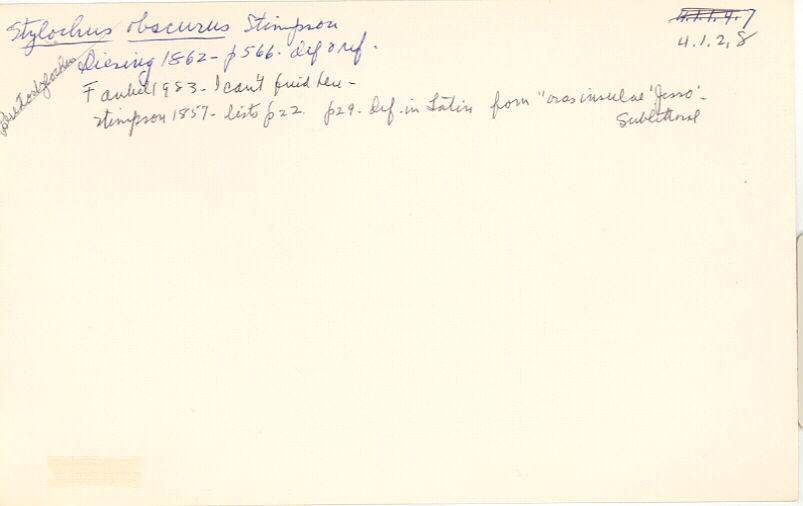 Stylochus obscurus Stimpson
4.1.1.4.7
4.1.2,8
Pseudostylochus
Diesing 1862 - p566. def & ref.
Faubel 1983 - I can't find here -
Stimpson 1857 - lists p22. p29. Def. in Latin from "oras insulae 'Jesso' -
Sublittoral